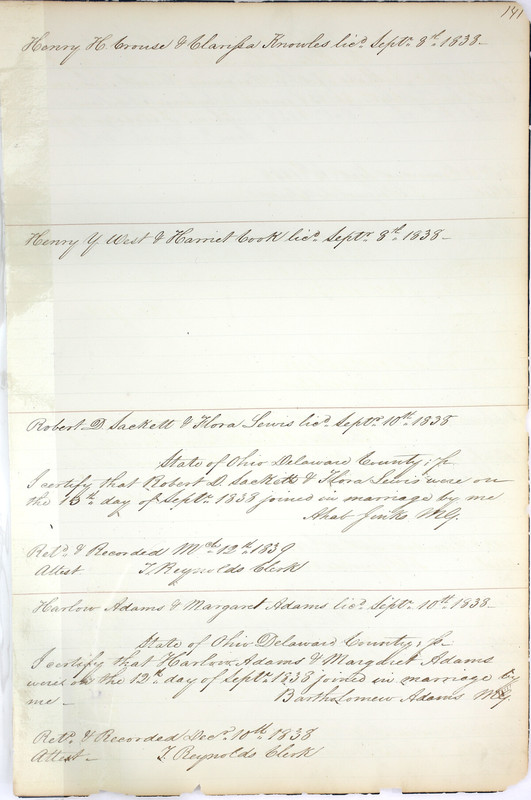 141
Henry H. Crouse & Clarissa Knowles licd. Septr. 8th. 1838 —
Henry Y. West & Harriet Cook licd. Septr. 8th. 1838 —
Robert D. Sackett & Flora Lewis licd. Septr. 10th. 1838
State of Ohio Delaware County; ss
I certify that Robert D. Sackett & Flora Lewis were on
the 13th. day of Septr. 1838 joined in marriage by me
Ahab Jinks MG.
Retd. & Recorded Mch. 12th. 1839
Attest T. Reynolds Clerk
Harlow Adams & Margaret Adams licd. Septr. 10th. 1838 —
State of Ohio Delaware County; ss —
I certify that Harlow Adams & Margaret Adams
were on the 12th. day of Septr. 1838 joined in marriage by
me — Bartholomew Adams MG.
Retd. & Recorded Decr. 10th. 1838
Attest — T. Reynolds Clerk